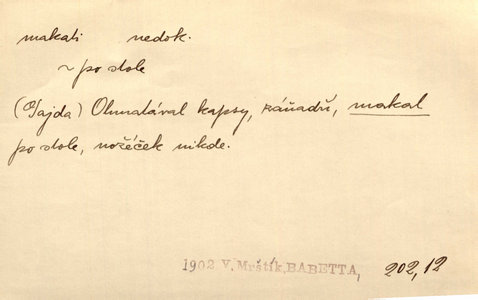 makati nedok.
~ po stole
(Gajda) Ohmatával kapsy, záňadří, makal
po stole, nožéček nikde.
1902 V. Mrštík, BABETTA, 202,12